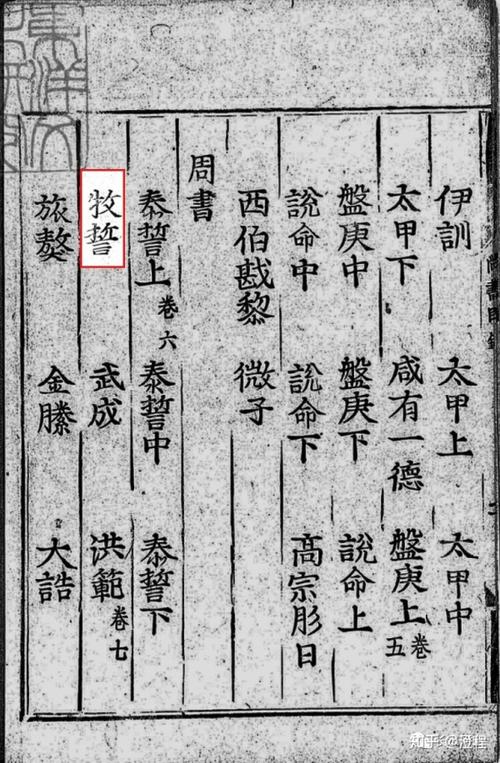 伊訓 太甲上 太甲中
太甲下 咸有一德 盤庚上 卷五
盤庚中 盤庚下 說命上
說命中 說命下 高宗肜日
西伯戡黎 微子
周書
泰誓上 卷六 泰誓中 泰誓下
牧誓 武成 洪範 卷七
旅獒 金縢 大誥
知乎 @橙程